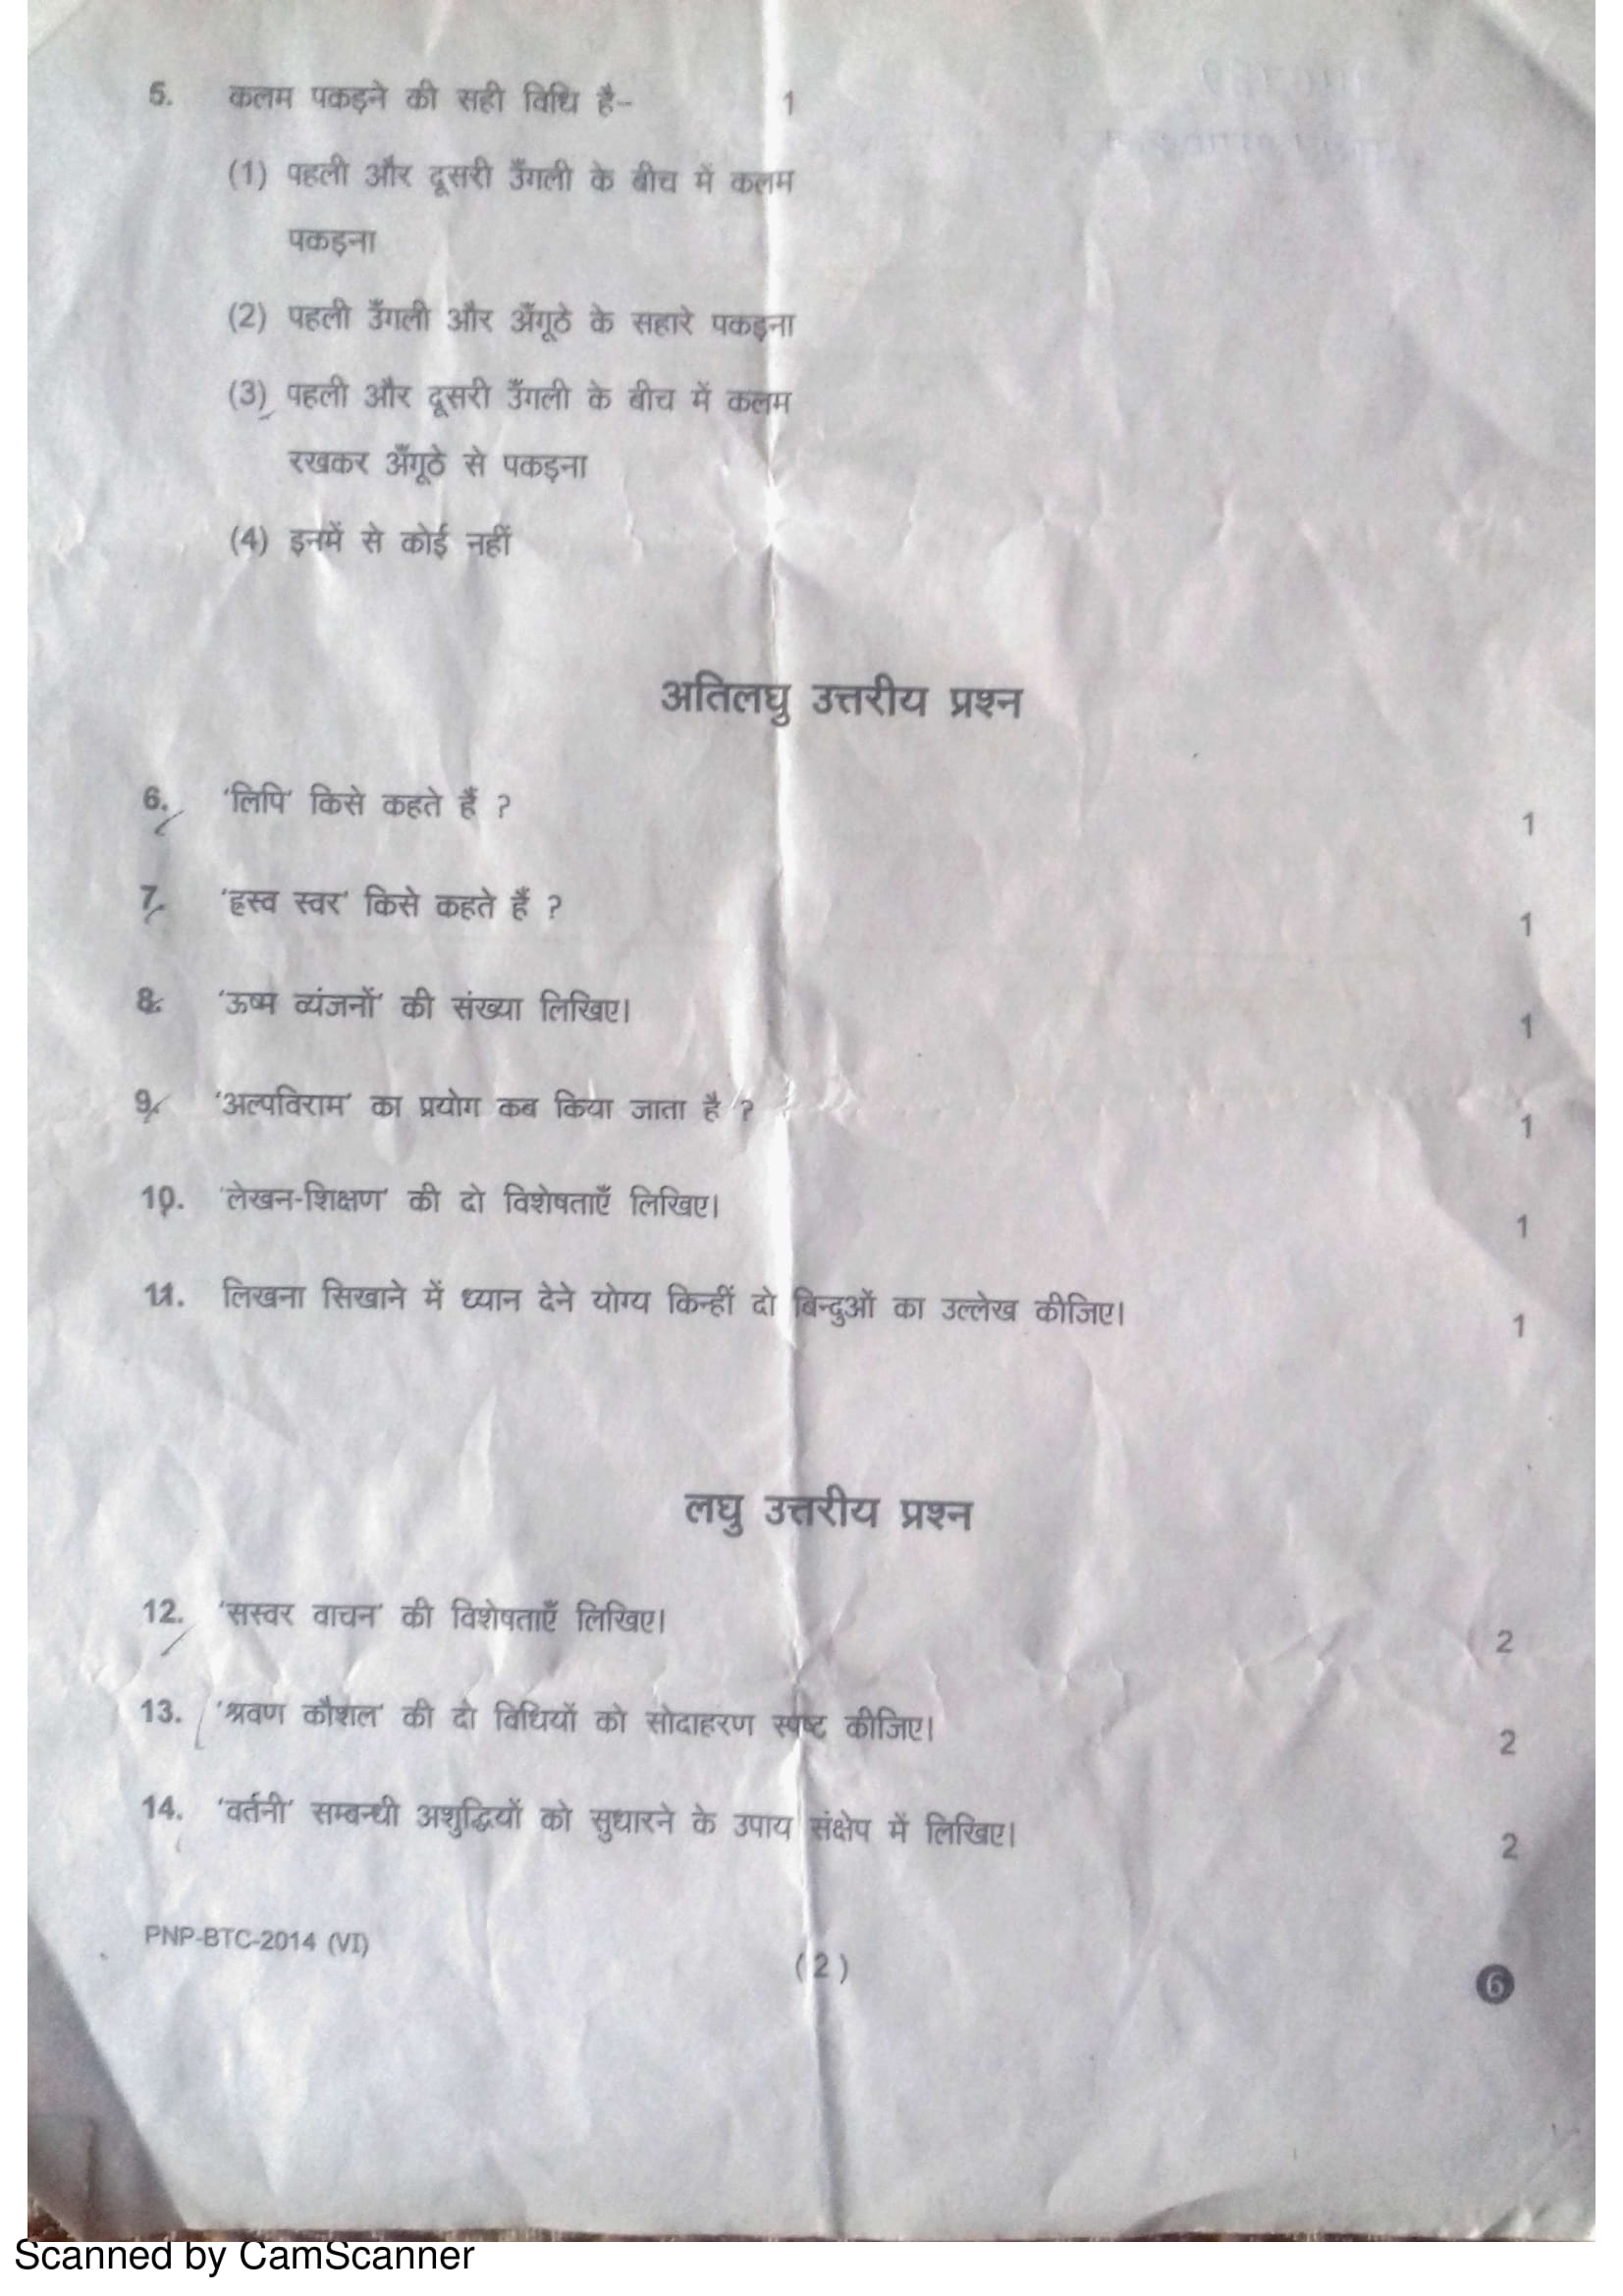 5. कलम पकड़ने की सही विधि है– 1
(1) पहली और दूसरी उँगली के बीच में कलम
पकड़ना
(2) पहली उँगली और अँगूठे के सहारे पकड़ना
(3) पहली और दूसरी उँगली के बीच में कलम
रखकर अँगूठे से पकड़ना
(4) इनमें से कोई नहीं
अतिलघु उत्तरीय प्रश्न
6. 'लिपि' किसे कहते हैं ? 1
7. 'ह्रस्व स्वर' किसे कहते हैं ? 1
8. 'ऊष्म व्यंजनों' की संख्या लिखिए। 1
9. 'अल्पविराम' का प्रयोग कब किया जाता है ? 1
10. 'लेखन-शिक्षण' की दो विशेषताएँ लिखिए। 1
11. लिखना सिखाने में ध्यान देने योग्य किन्हीं दो बिन्दुओं का उल्लेख कीजिए। 1
लघु उत्तरीय प्रश्न
12. 'सस्वर वाचन' की विशेषताएँ लिखिए। 2
13. 'श्रवण कौशल' की दो विधियों को सोदाहरण स्पष्ट कीजिए। 2
14. 'वर्तनी' सम्बन्धी अशुद्धियों को सुधारने के उपाय संक्षेप में लिखिए। 2
PNP-BTC-2014 (VI)
(2)
6
Scanned by CamScanner